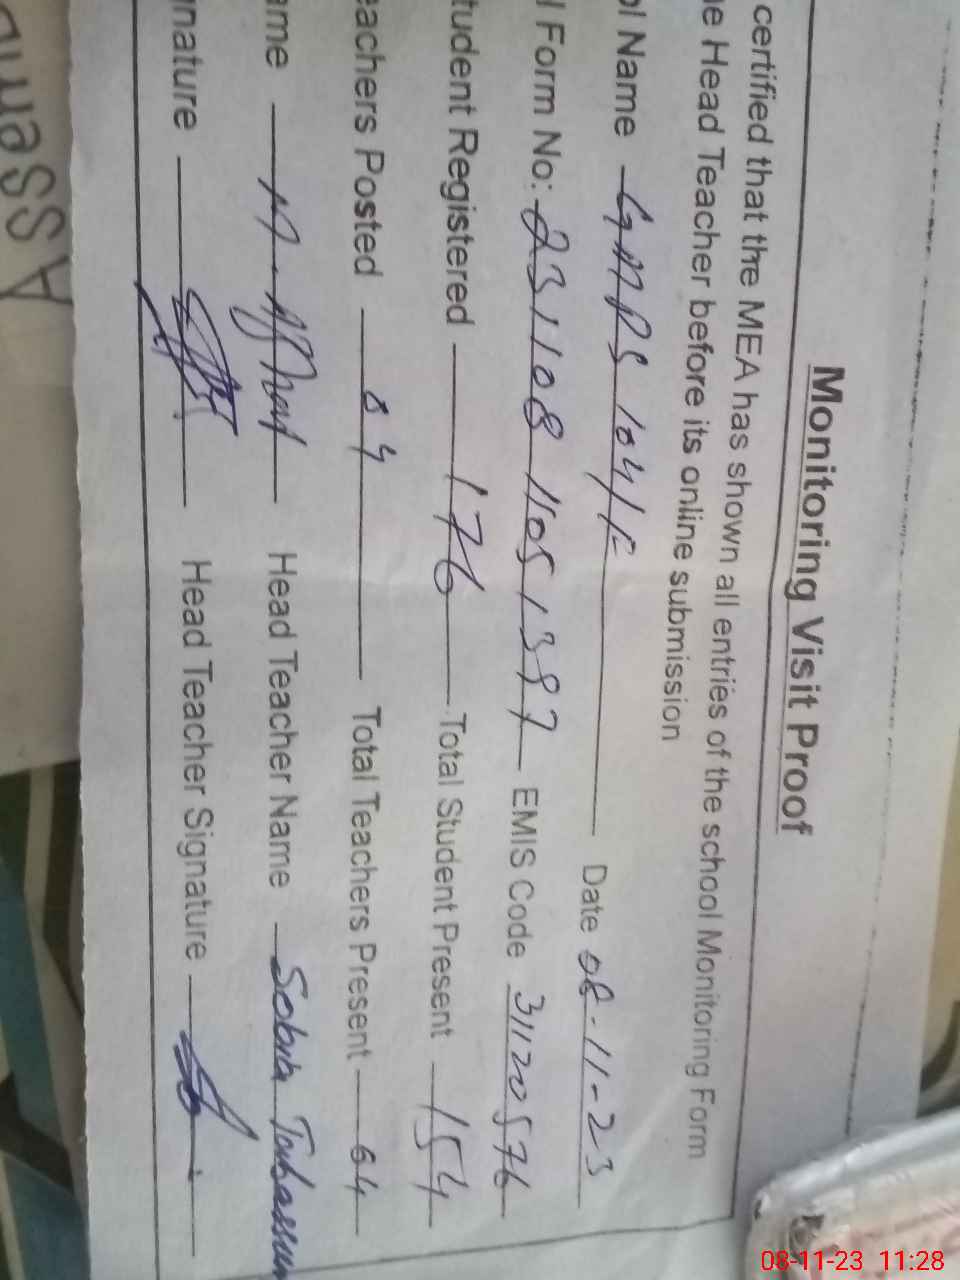 Monitoring Visit Proof
certified that the MEA has shown all entries of the school Monitoring Form
e Head Teacher before its online submission
ol Name GMPS 104/P Date 08-11-23
l Form No: 231108 1105 1397 EMIS Code 31120576
tudent Registered 176 Total Student Present 154
eachers Posted 04 Total Teachers Present 04
ame A. Afzal Head Teacher Name Sobia Tabassum
gnature Head Teacher Signature
Assemb
08-11-23 11:28